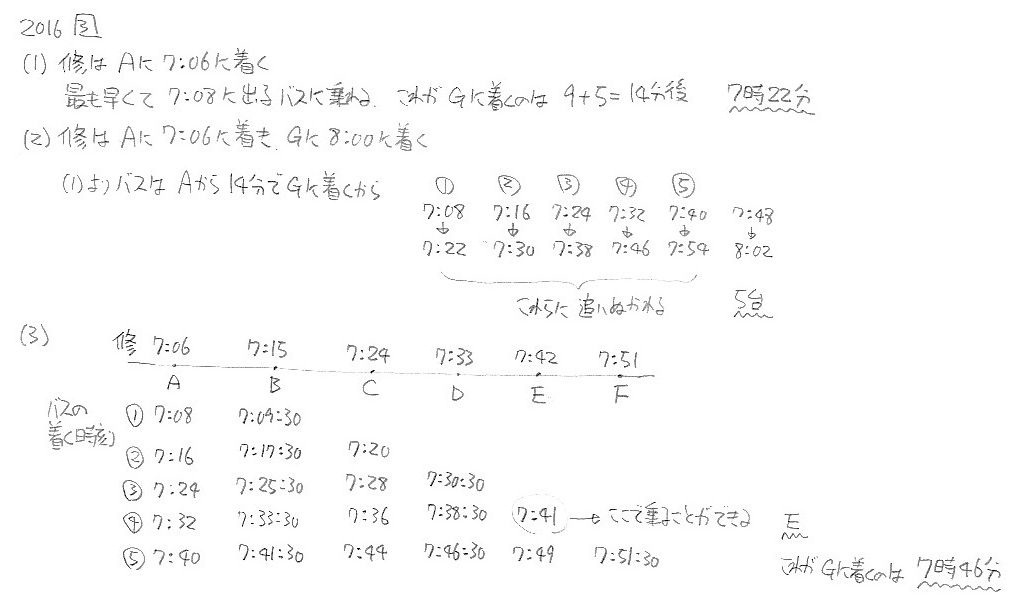 2016 ③
(1) 修は Aに 7:06に着く
最も早くて 7:08に出るバスに乗れる。これが Gに着くのは 9+5=14分後 7時22分
(2) 修は Aに 7:06に着き、Gに 8:00に着く
(1)よりバスは Aから14分でGに着くから ① ② ③ ④ ⑤
7:08 7:16 7:24 7:32 7:40 7:48
↓ ↓ ↓ ↓ ↓ ↓
7:22 7:30 7:38 7:46 7:54 8:02
これらに追いぬかれる 5台
(3) 修 7:06 7:15 7:24 7:33 7:42 7:51
A B C D E F
バスの着く時刻
① 7:08 7:09:30
② 7:16 7:17:30 7:20
③ 7:24 7:25:30 7:28 7:30:30
④ 7:32 7:33:30 7:36 7:38:30 7:41 → ここで乗ることができる E
⑤ 7:40 7:41:30 7:44 7:46:30 7:49 7:51:30
これがGに着くのは 7時46分